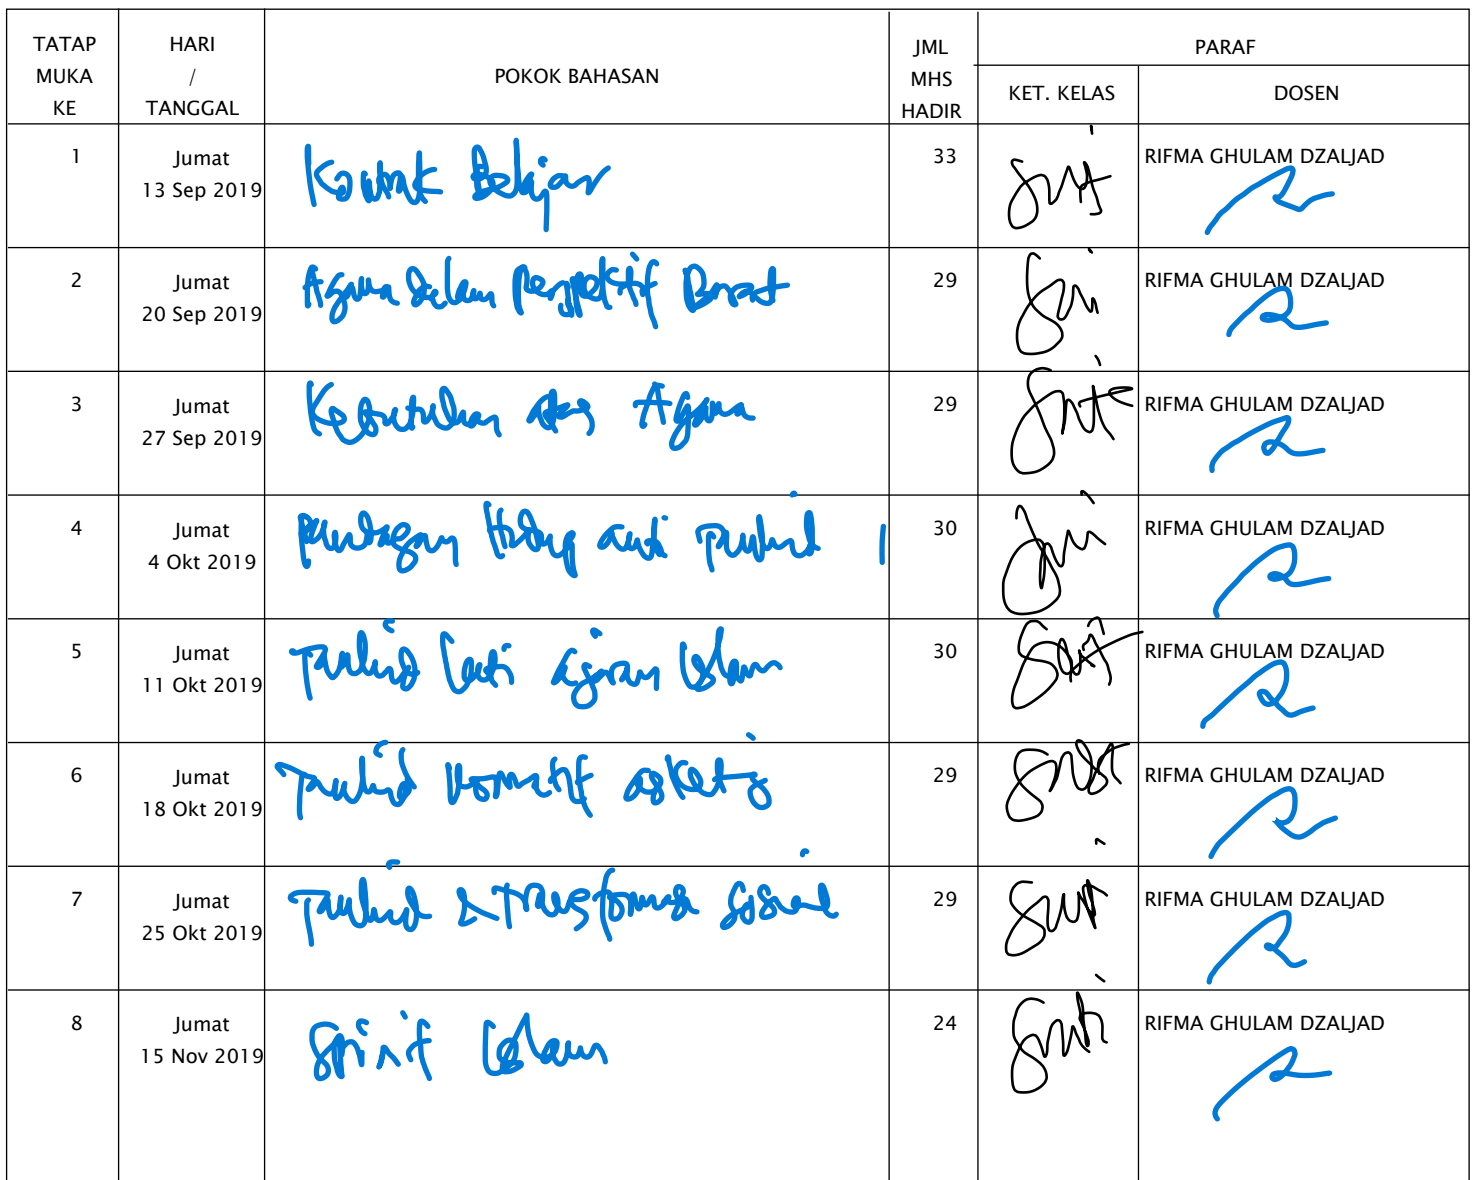 TATAP MUKA KE HARI / TANGGAL POKOK BAHASAN JML MHS HADIR PARAF
KET. KELAS DOSEN
1 Jumat 13 Sep 2019 Kontrak Belajar 33 RIFMA GHULAM DZALJAD
2 Jumat 20 Sep 2019 Agama dalam perspektif Barat 29 RIFMA GHULAM DZALJAD
3 Jumat 27 Sep 2019 Kebutuhan atas Agama 29 RIFMA GHULAM DZALJAD
4 Jumat 4 Okt 2019 Hidup Tauhid 30 RIFMA GHULAM DZALJAD
5 Jumat 11 Okt 2019 Tauhid Inti ajaran Islam 30 RIFMA GHULAM DZALJAD
6 Jumat 18 Okt 2019 Tauhid asketis 29 RIFMA GHULAM DZALJAD
7 Jumat 25 Okt 2019 Tauhid & Transformasi Sosial 29 RIFMA GHULAM DZALJAD
8 Jumat 15 Nov 2019 Spirit Islam 24 RIFMA GHULAM DZALJAD